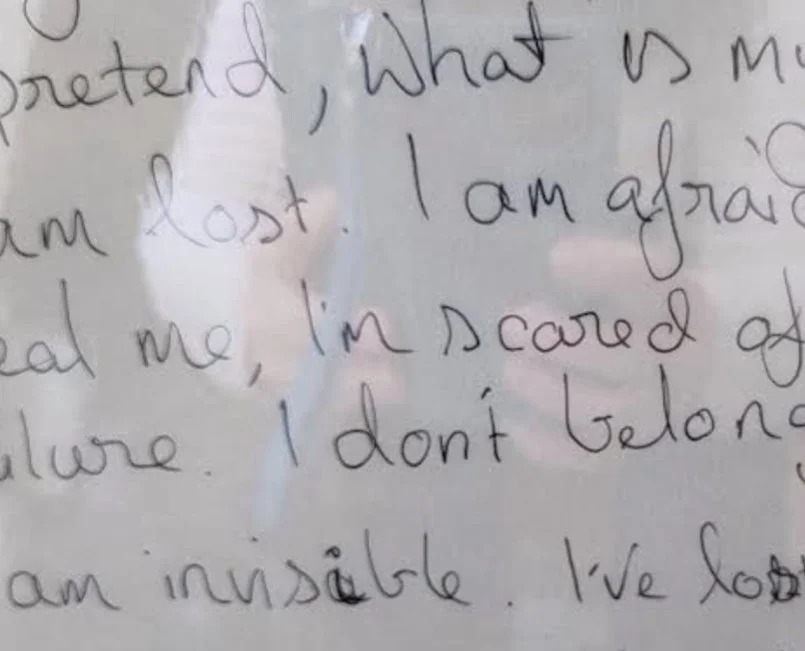 pretend, What is my
am lost. I am afraid
eal me, I'm scared of
ilure. I don't belong
am invisible. I've lost